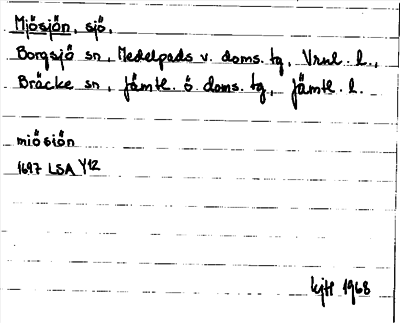 Mjösjön, sjö,
Borgsjö sn, Medelpads v. doms. tg, Vrnl. l.,
Bräcke sn, Jämtl. ö doms. tg, Jämtl. l.
miösiön
1697 LSA Y12
kjtl 1968